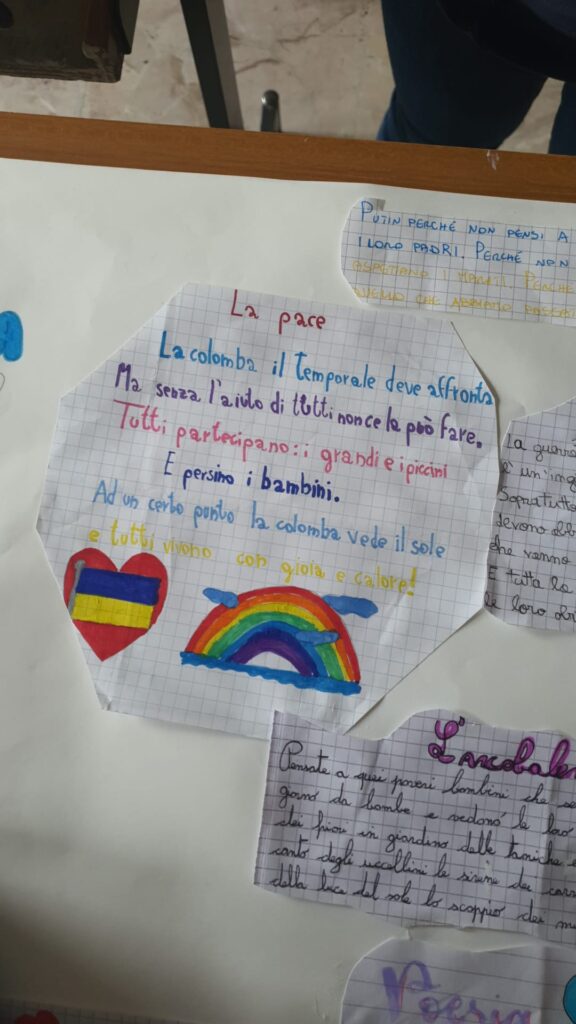 PUTIN PERCHÉ NON PENSI A
I LORO PADRI. PERCHÉ NON
ASPETTANO I MARITI. PERCHÉ
La pace
La colomba il temporale deve affronta
Ma senza l'aiuto di tutti non ce la può fare.
Tutti partecipano: i grandi e i piccini
E persino i bambini.
Ad un certo punto la colomba vede il sole
e tutti vivono con gioia e calore!
La guerra
è un'ing
Soprattutto
devono
che vanno
E tutta la
le loro
L'arcobalen
Pensate a quei poveri bambini che se
giorno da bombe e vedono le loro
dei fiori in giardino delle
canto degli uccellini le sirene dei carr
della luce del sole lo scoppio dei m
Poesia